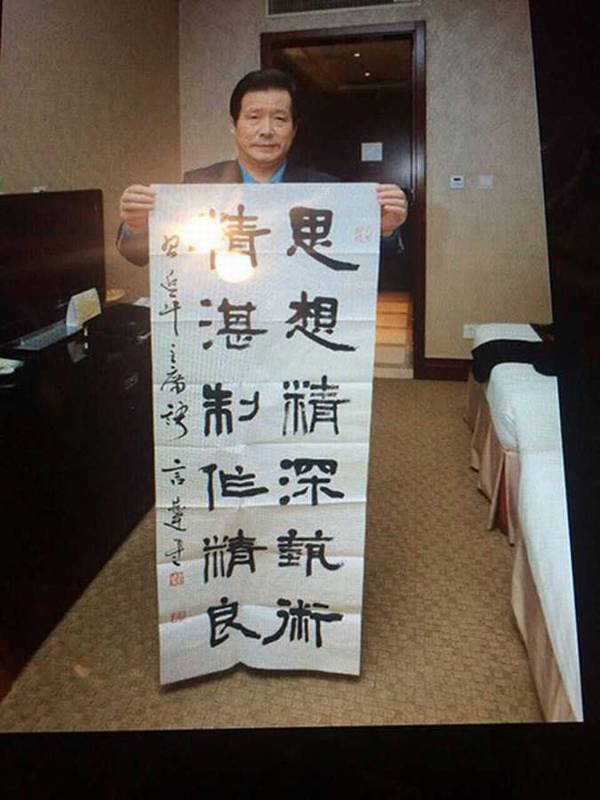 思想精深藝術
精湛制作精良
習近平主席語 言